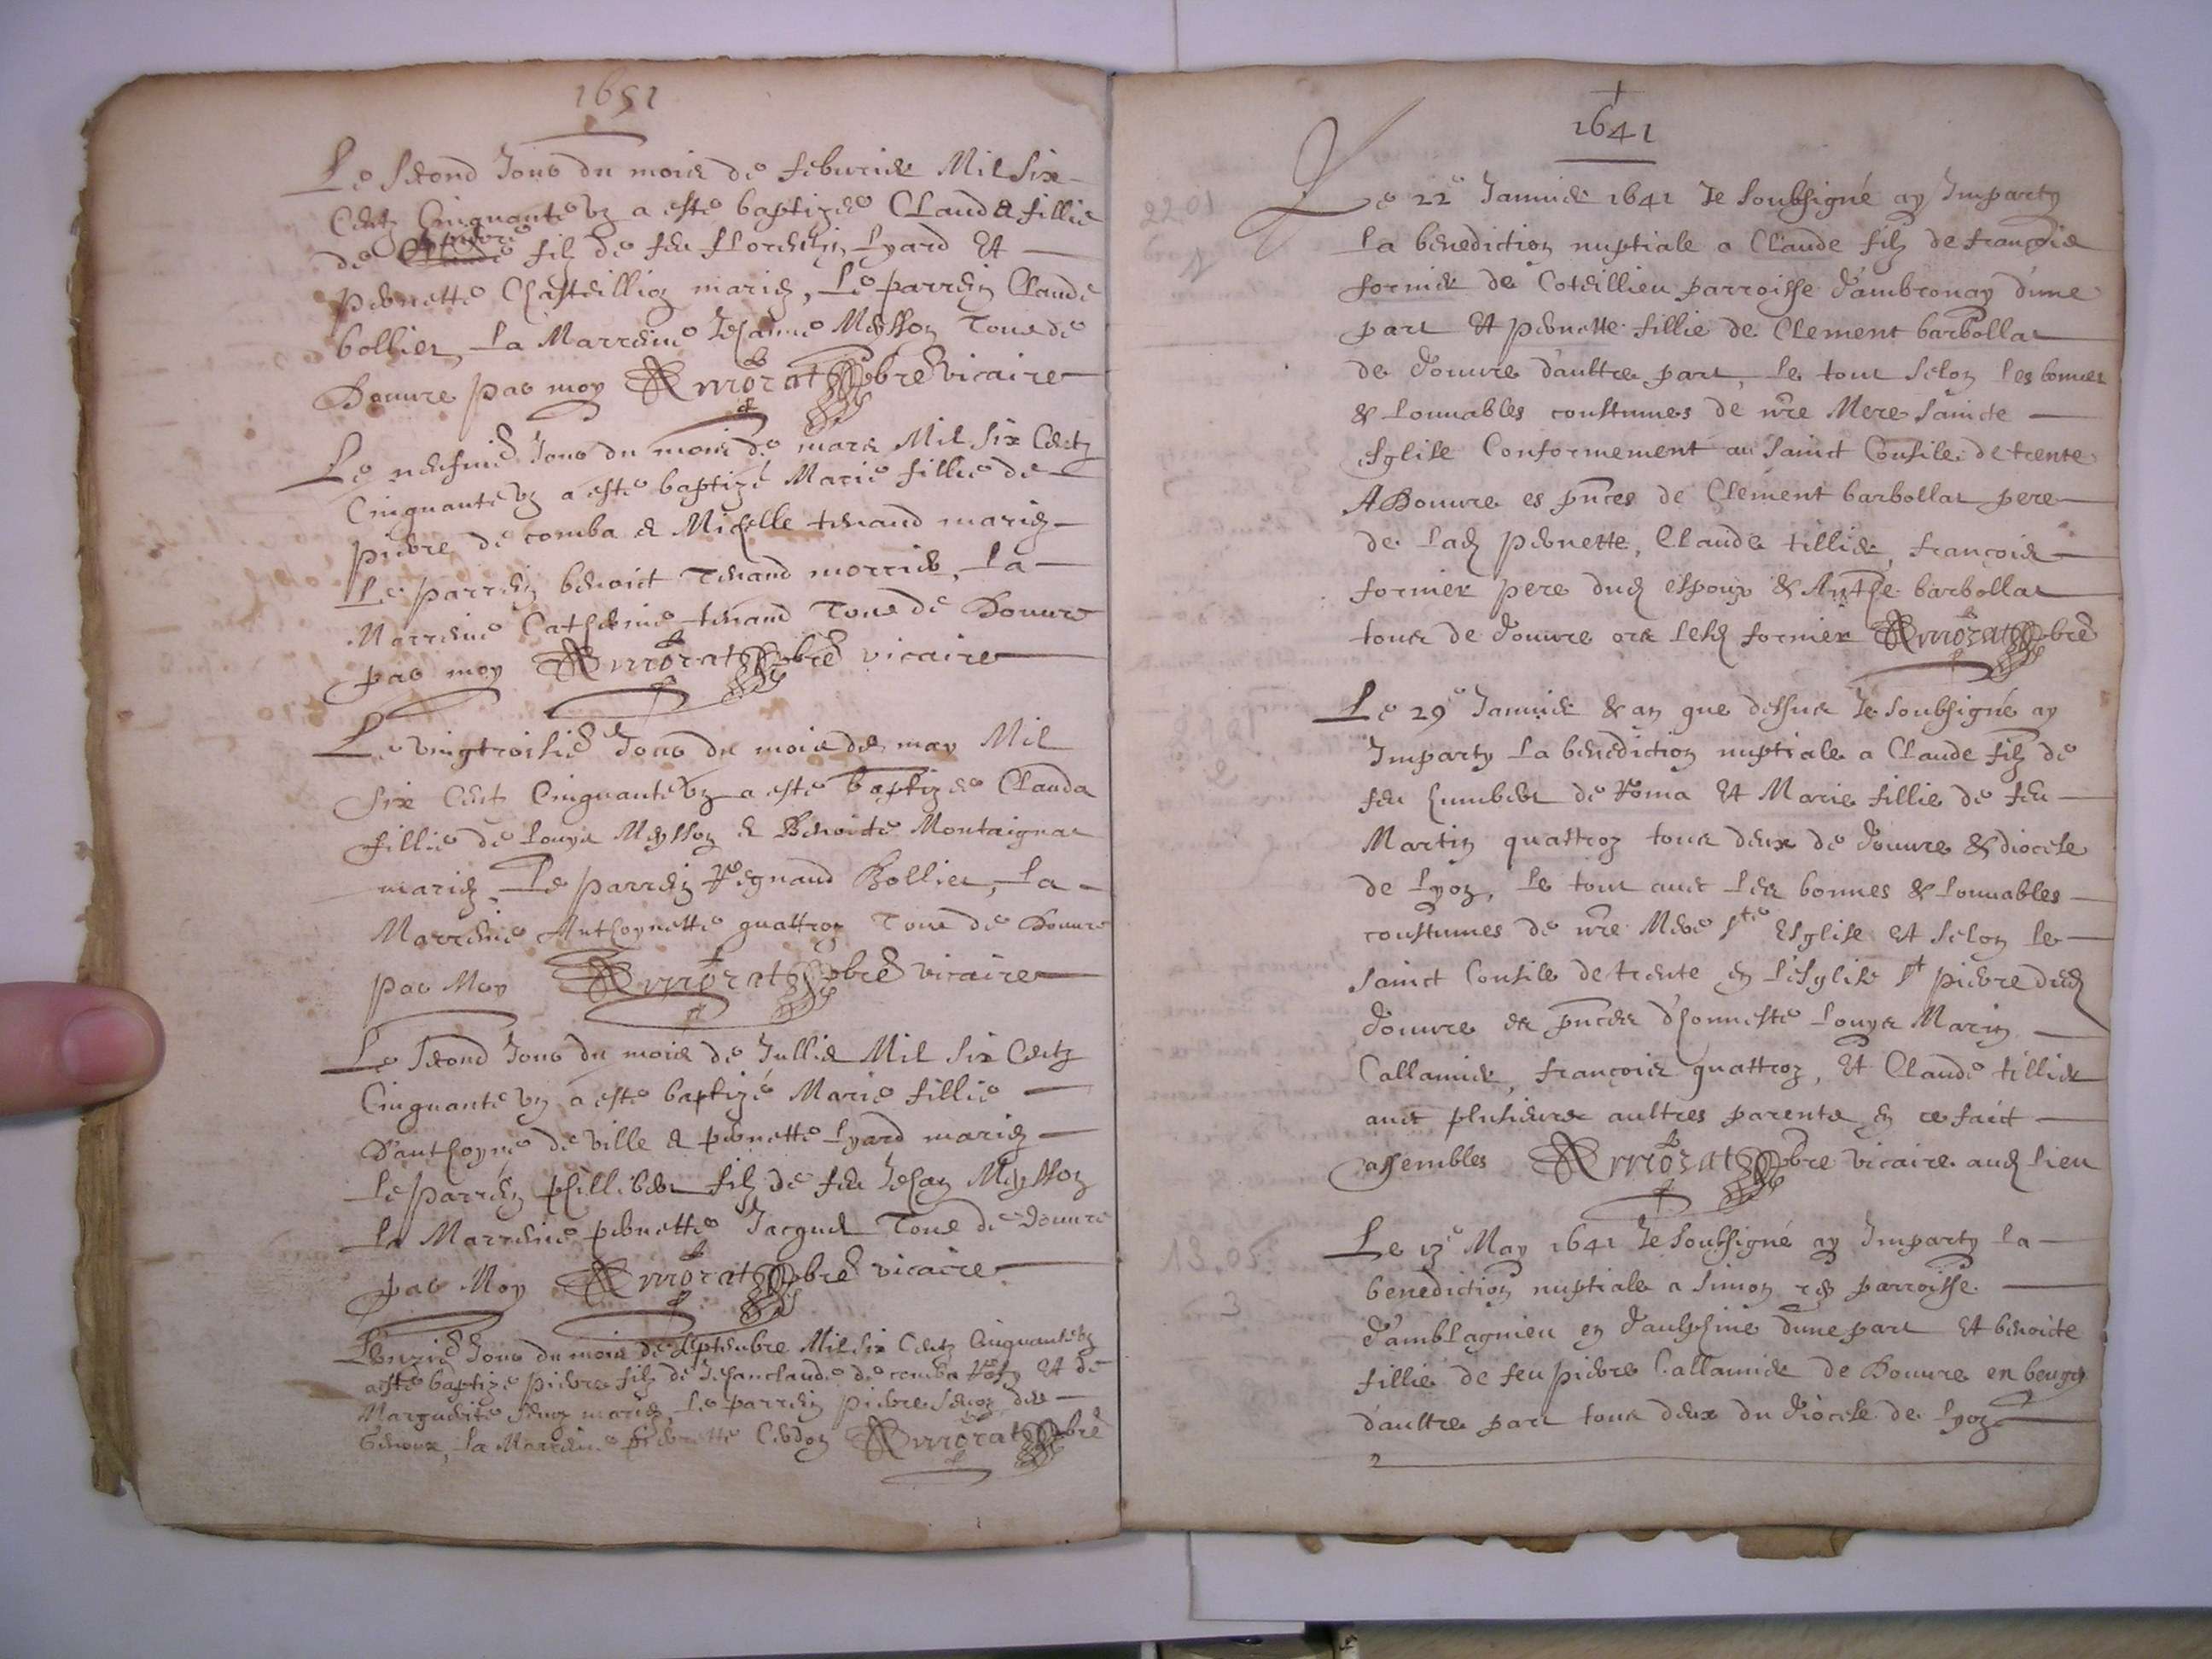 1651
Le second Jour du mois de febvrier Mil six
Centz Cinquante vng a este baptizee Clauda fillie
de pierre filz de feu florentin Lyard Et
pernette Chasteillion mariez, Le parrein Claude
bollier, La Marreine Jehanne Meysson Tous de
Douure par moy Armorat pbre vicaire
Le neufvie Jour du mois de mars Mil six Centz
Cinquante vng a este baptizé Marie fillie de
pierre de comba & Michelle tenand mariez
Le parrein benoict Tenand morrier, La
Marreine Catherine tenand Tous de Douure
par moy Armorat pbre vicaire
Le vingtroisie Jour du mois de may Mil
six Centz Cinquante vng a este baptizee Clauda
fillie de Louys Meysson & Benoite Montaignat
mariez, Le parrein Regnaud Bollier, La
Marreine Anthoynette quattron Tous de Douure
par Moy Armorat pbre vicaire
Le second Jour du mois de Jullie Mil six Centz
Cinquante vng a este baptizé Marie fillie
D'anthoyne de ville & pernette Lyard mariez
Le parrein phillibert filz de feu Jehan Meysson
La Marreine pernette Jacquet Tous de douure
par Moy Armorat pbre vicaire
L'onzie Jour du mois de septembre Mil six Centz Cinquante vng
a este baptizé pierre filz de Jehanclaude de comba Et de
Marguerite mariez, Le parrein pierre
La Marreine pierrette Cerdon Armorat pbre
1641
Le 22e Januier 1641 Je soubsigné ay Imparty
la benediction nuptiale a Claude filz de françois
formier de Coteillieu parroisse d'ambronay d'une
part Et pernette fillie de Clement barbollat
de douure d'aultre part, le tout selon les bonnes
& louuables coustumes de nre Mere saincte
esglise Conformement au sainct Consile de trente
A Douure es pnces de Clement barbollat pere
de lad pernette, Claude tillier, françois
formier pere dud espoux & Anthe barbollat
tous de douure ors led formier Armorat pbre
Le 29e Januier & an que dessus Je soubsigné ay
Imparty la benediction nuptiale a Claude filz de
feu humbert de Roma Et Marie fillie de feu
Martin quattron tous deux de douure & diocese
de Lyon, le tout auec les bonnes & louuables
coustumes de nre Mere ste Esglise Et selon le
sainct Consile de trente en l'esglise st pierre dud
douure es pnces d'honneste Louys Marin
Callamier, françois quattron, Et Claude tillier
auec plusieurs aultres parents en ce faict
assembles Armorat pbre vicaire aud lieu
Le 13e May 1641 Je soubsigné ay Imparty la
benediction nuptiale a simon rey parroisse
d'amblagnieu en daulphine d'une part Et benoicte
fillie de feu pierre Callamier de Douure en beugey
d'aultre part tous deux du diocese de Lyon